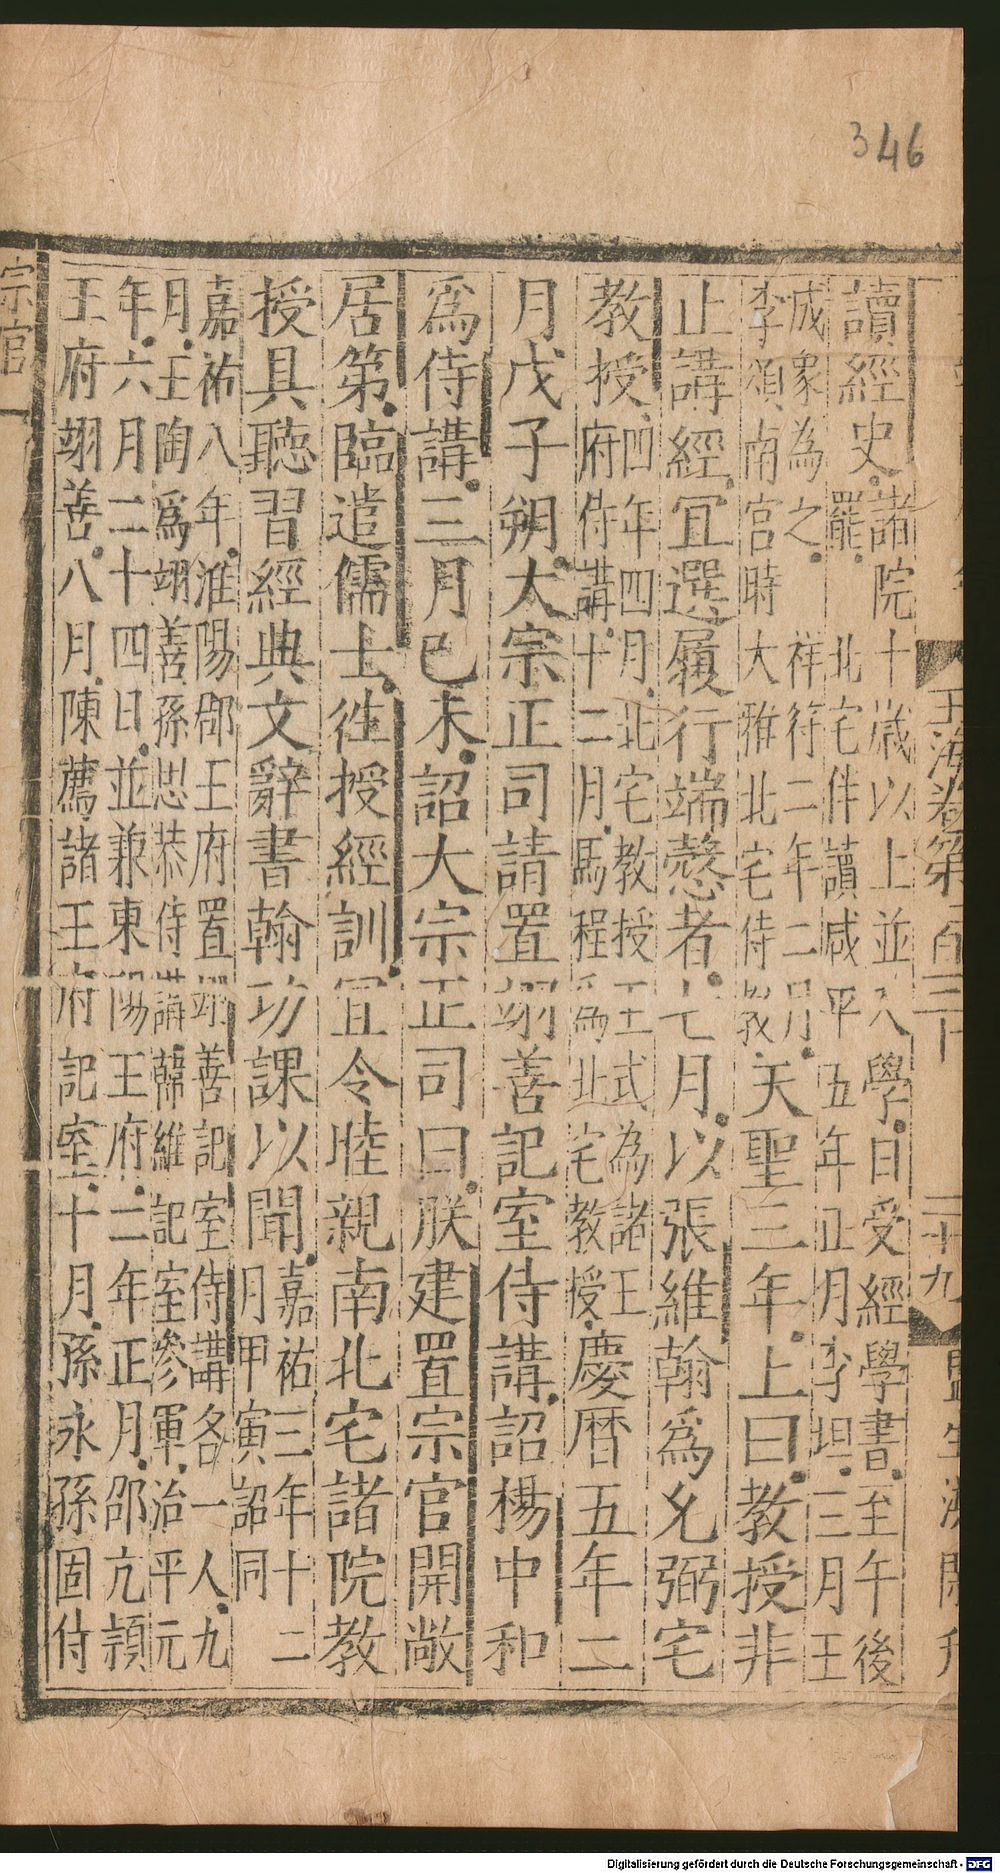 346
玉海卷第一百三十 二十九
讀經史罷諸院十歲以上並入學日受經學書至午後
北宅伴讀咸平五年正月李坦三月王
成象為之 祥符二年二月
李頌南宮時大雅北宅侍教天聖三年上曰教授非
止講經宜選履行端愨者七月以張維翰爲允弼宅
教授四年四月北宅教授王式為諸王
府侍講十二月馬程爲北宅教授慶曆五年二
月戊子朔大宗正司請置翊善記室侍講詔楊中和
爲侍講三月已未詔大宗正司曰朕建置宗官開敞
居第臨遣儒士徃授經訓宜令睦親南北宅諸院教
授具聽習經典文辭書翰功課以聞嘉祐三年十二
月甲寅詔同
嘉祐八年淮陽郡王府置翊善記室侍講各一人九
月王陶爲翊善孫思恭侍講韓維記室參軍治平元
年六月二十四日並兼東陽王府二年正月邵亢頴
王府翊善八月陳薦諸王府記室十月孫永孫固侍
宗官
Digitalisierung gefördert durch die Deutsche Forschungsgemeinschaft - DFG